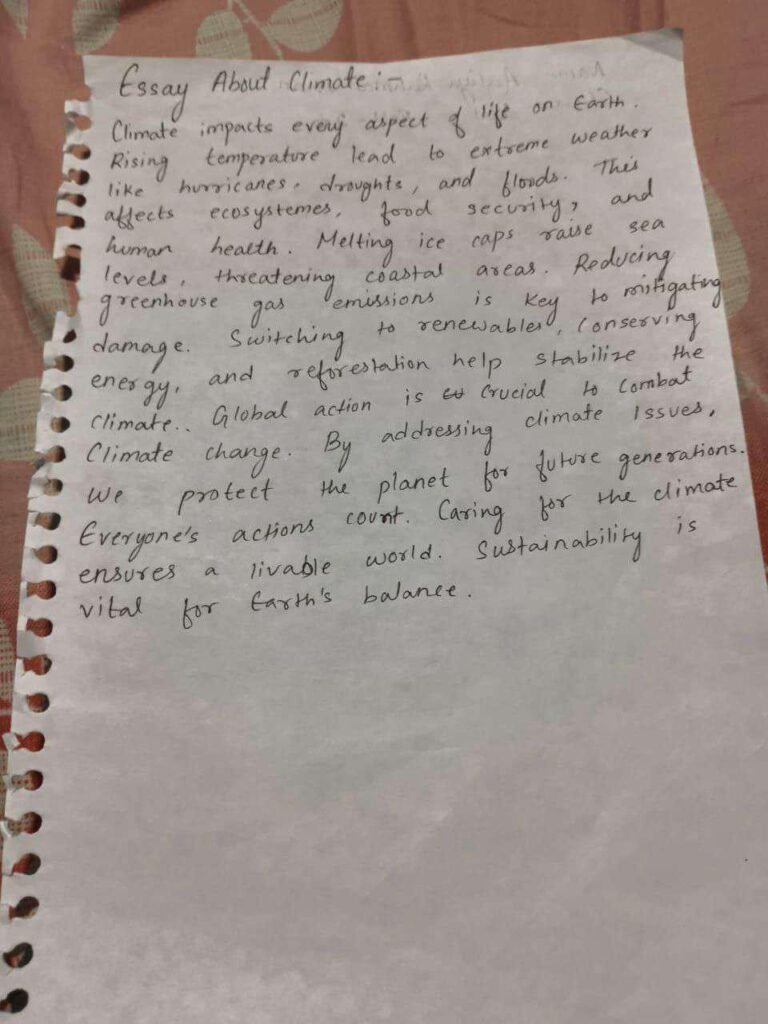 Essay About Climate :-
Climate impacts every aspect of life on Earth.
Rising temperature lead to extreme weather
like hurricanes, droughts, and floods. This
affects ecosystemes, food security, and
human health. Melting ice caps raise sea
levels, threatening coastal areas. Reducing
greenhouse gas emissions is key to mitigating
damage. Switching to renewables, conserving
energy, and reforestation help stabilize the
climate.. Global action is crucial to combat
Climate change. By addressing climate Issues,
we protect the planet for future generations.
Everyone's actions count. Caring for the climate
ensures a livable world. Sustainability is
vital for Earth's balance.